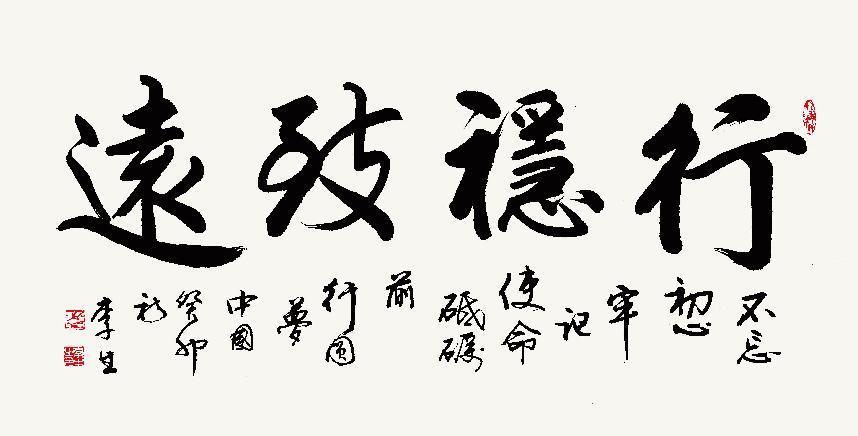 行穩致遠
不忘
初心
牢
记
使命
砥砺
前
行圆
夢
中國
癸卯
李生